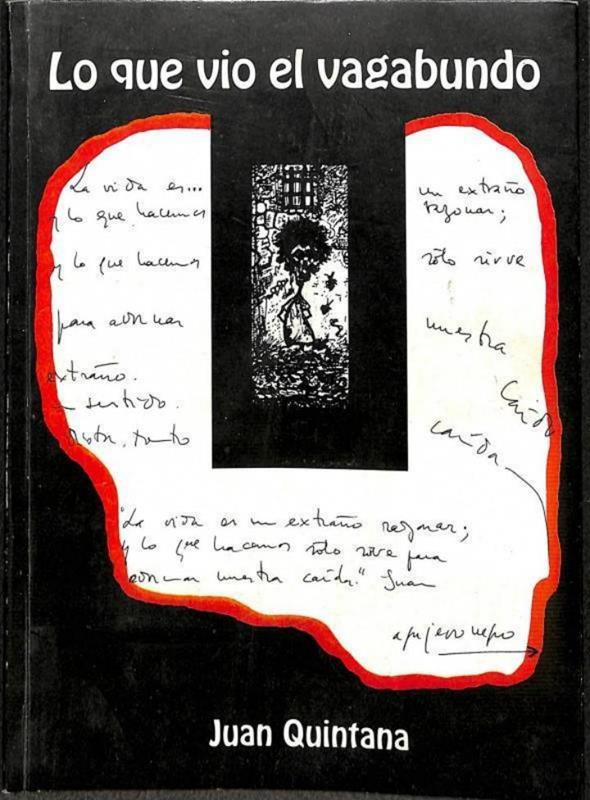 Lo que vio el vagabundo
La vida es... un extraño
y lo que hacemos razonar;
y lo que hacemos sólo sirve
para adornar nuestra
extraño. caída
sentido. caída
tanto
"La vida es un extraño razonar;
y lo que hacemos sólo sirve para
adornar nuestra caída." Juan
agujero negro
Juan Quintana